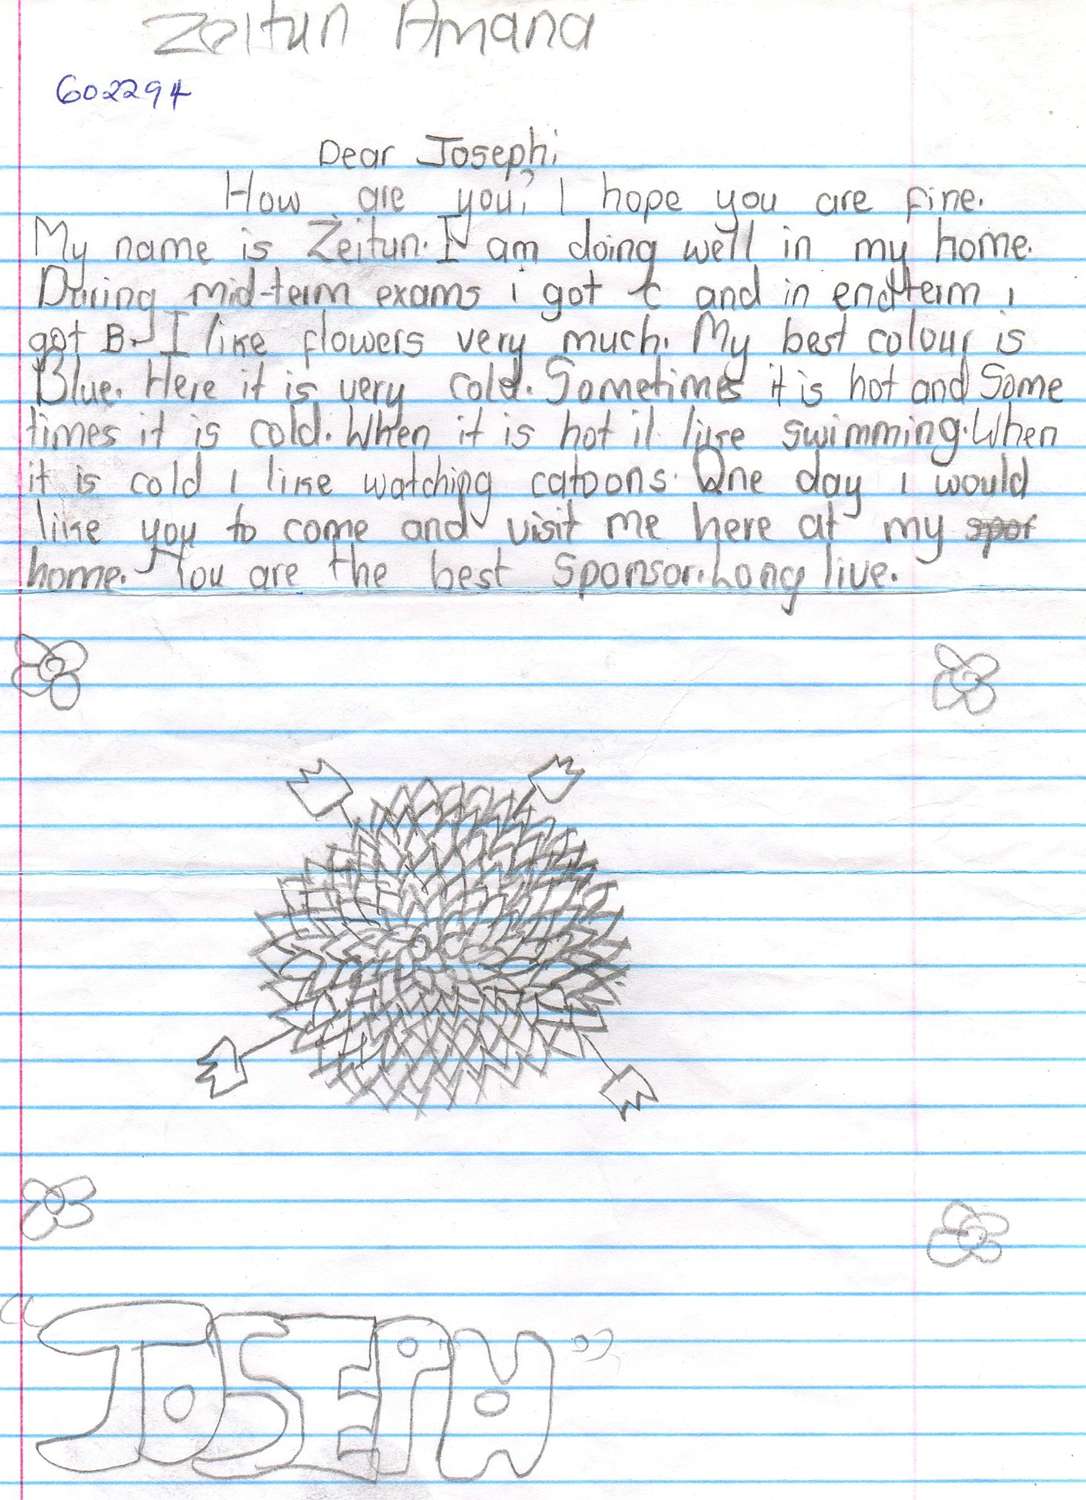 Zeitun Amana
602294
Dear Joseph,
How are you? I hope you are fine.
My name is Zeitun. I am doing well in my home.
During mid-term exams i got C and in endterm i
got B. I like flowers very much. My best colour is
Blue. Here it is very cold. Sometimes it is hot and Some
times it is cold. When it is hot i like swimming. When
it is cold i like watching catoons. One day i would
like you to come and visit me here at my spor
home. You are the best Sponsor. Long live.
"JOSEPH"